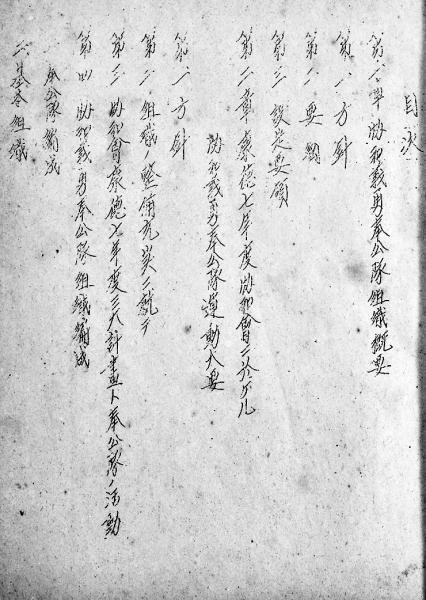 目次
第一章 協和義勇奉公隊組織概要
第一 方針
第二 要領
第三 設定要領
第二章 康徳七年度協和會ニ於ケル
協和義勇奉公隊運動大要
第一 方針
第二 組織ノ整備充実ニ就テ
第三 協和會康徳七年度三大計畫ト奉公隊ノ活動
第四 協和義勇奉公隊組織編成
一、奉公隊編成
二、基本組織